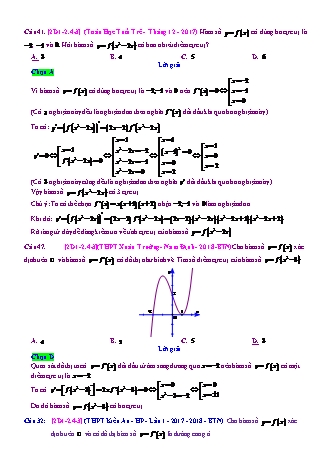 Câu 41. [2D1-2.4-3] (Toán Học Tuổi Trẻ - Tháng 12 - 2017) Hàm số y=f(x) có đúng ba cực trị là
-2, -1 và 0. Hỏi hàm số y=f(x²-2x) có bao nhiêu điểm cực trị?
A. 3 B. 4 C. 5 D. 6
Lời giải
Chọn A
Vì hàm số y=f(x) có đúng ba cực trị là -2, -1 và 0 nên f'(x)=0 ⇔ [x=-2 x=-1 x=0
(Có 3 nghiệm này đều là nghiệm đơn theo nghĩa f'(x) đổi dấu khi qua ba nghiệm này)
Ta có: y'=[f(x²-2x)]'=(2x-2)f'(x²-2x)
y'=0 ⇔ [x=1 f'(x²-2x)=0 ⇔ [x=1 x²-2x=-2 x²-2x=-1 x²-2x=0 ⇔ [x=1 (x-1)²=0 x=0 x=2 ⇔ [x=1 x=0 x=2
(Có 3 nghiệm này cũng đều là nghiệm đơn theo nghĩa y' đổi dấu khi qua ba nghiệm này)
Vậy hàm số y=f(x²-2x) có 3 cực trị
Chú ý: Ta có thể chọn f'(x)=x(x+1)(x+2) nhận -2, -1 và 0 làm nghiệm đơn
Khi đó: y'=[f(x²-2x)]'=(2x-2)f'(x²-2x)=(2x-2)(x²-2x)(x²-2x+1)(x²-2x+2)
Rõ ràng từ đây dễ dàng kiểm tra về tính cực trị của hàm số y=f(x²-2x)
Câu 47. [2D1-2.4-3] (THPT Xuân Trường - Nam Định - 2018-BTN) Cho hàm số y=f(x) xác
định trên ℝ và hàm số y=f'(x) có đồ thị như hình vẽ. Tìm số điểm cực trị của hàm số y=f(x²-3)
A. 4 B. 2 C. 5 D. 3
Lời giải
Chọn D
Quan sát đồ thị ta có y=f'(x) đổi dấu từ âm sang dương qua x=-2 nên hàm số y=f(x) có một
điểm cực trị là x=-2
Do đó hàm số y=f(x²-3) có ba cực trị
Câu 32: [2D1-2.4-3] (THPT Kiến An - HP - Lần 1 - 2017 - 2018 - BTN) Cho hàm số y=f(x) xác
định trên ℝ và có đồ thị hàm số y=f'(x) là đường cong ở